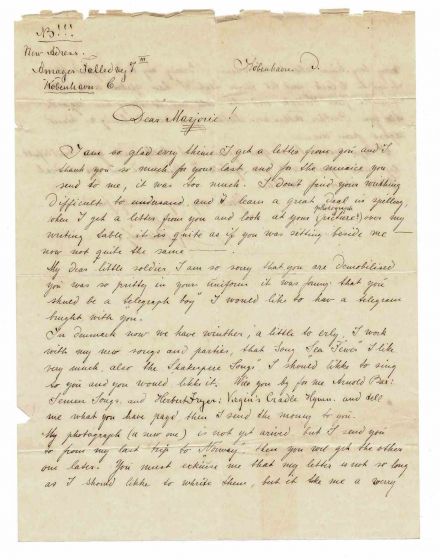 NB!!!
New Adress.
Amager Fælledvej 7 III
København C.
København D.
Dear Marjorie!
I am so glad every thime I get a letter from you and I
thank you so much for your last, and for the musice you
send to me, it was too much. I don't find your wrihting
difficult to understand, and I learn a great deal in spelling,
when I get a letter from you and look at your photograph (picture!) over my
writing table it is quite as if you was setting beside me —
now not quite the same —
My dear little soldier, I am so sorry that you are Demobilised
you was so pretty in your uniform it was funny that you
should be a "telegraph boy" I would like to hav a telegram
bught with you.
In denmark now we have winther, a little to erly. I work
with my new songs and parties, that song "Sea Fever" I like
very much, also the Shakespere Songs I should likke to sing
to you and you would like it. Will you by for me Arnold Bax:
Songs, and Herbert Fryer: Virgin's Cradle Hymn. and tell
me what you have paye then I send the money to you.
My photograph (a new one) is not yet arived but I send you
to from my last trip to Norway, then you will get the other
one later. You must exkuise me that my letter is not so long
as I should likke to whrite them, but it take me a werry